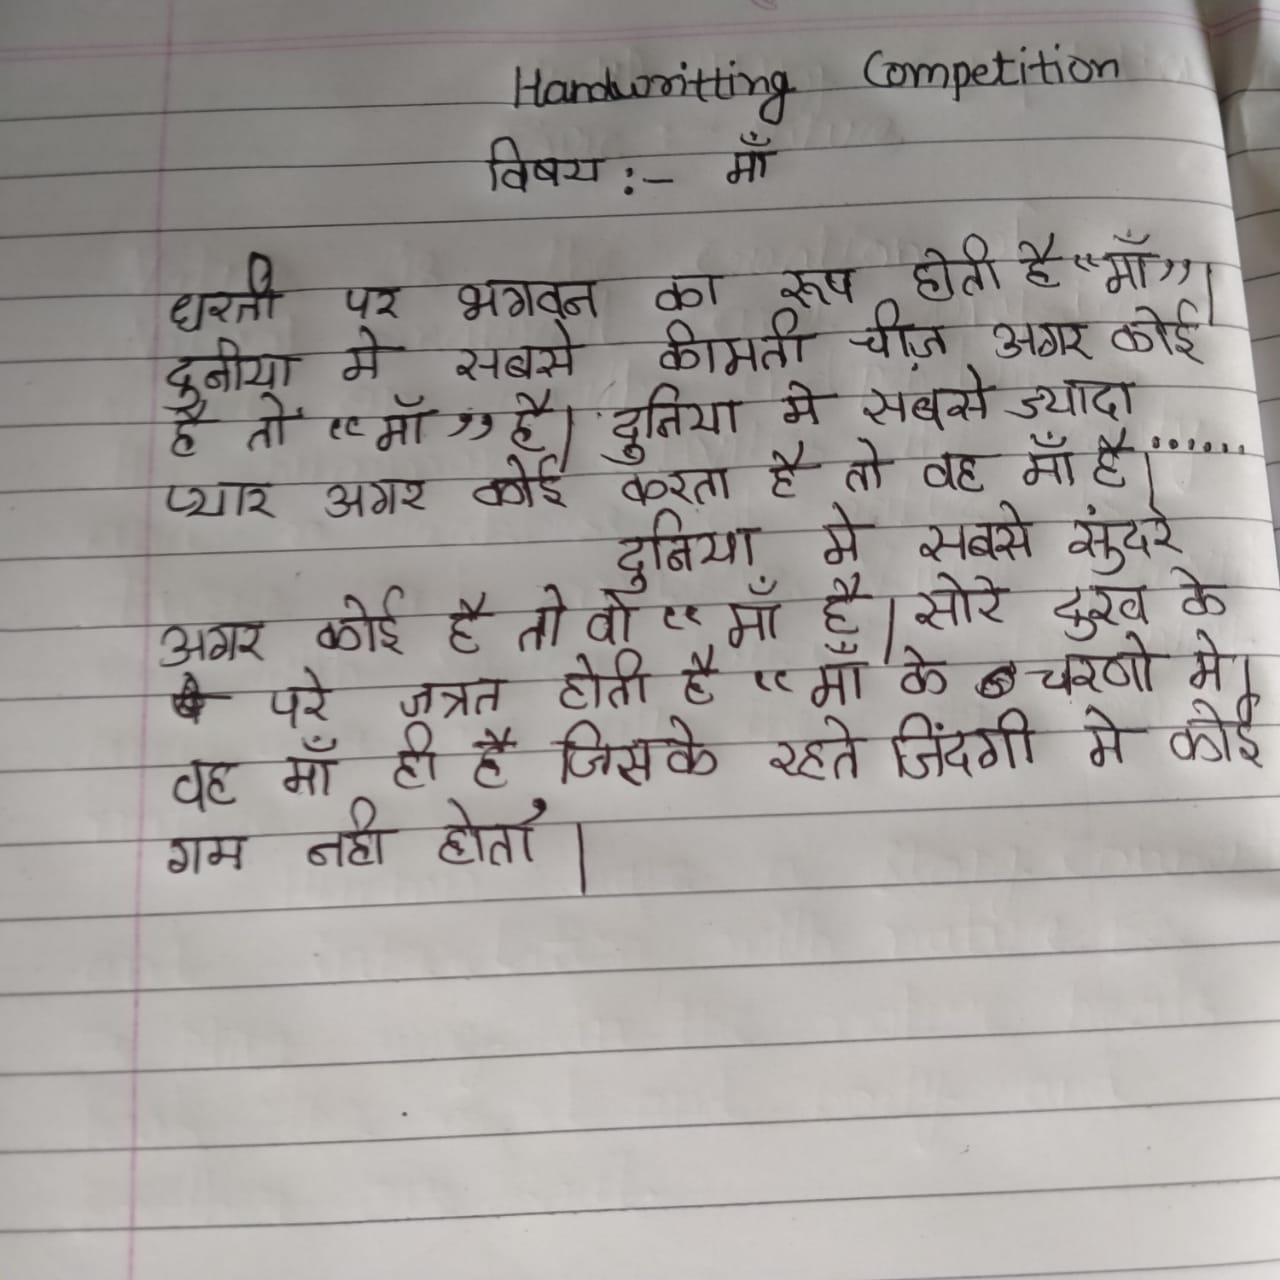 Handwritting Competition
विषय :- माँ
धरती पर भगवन का रूप होती है “माँ”।
दुनीया मे सबसे कीमती चीज़ अगर कोई
है तो “माँ” है। दुनिया मे सबसे ज्यादा
प्यार अगर कोई करता है तो वह माँ है।......
दुनिया मे सबसे सुंदरे
अगर कोई है तो वो “ माँ है। सोरे दुख के
परे जन्नत होती है “ माँ के चरणो मे।
वह माँ ही है जिसके रहते जिंदगी मे कोई
गम नही होता।